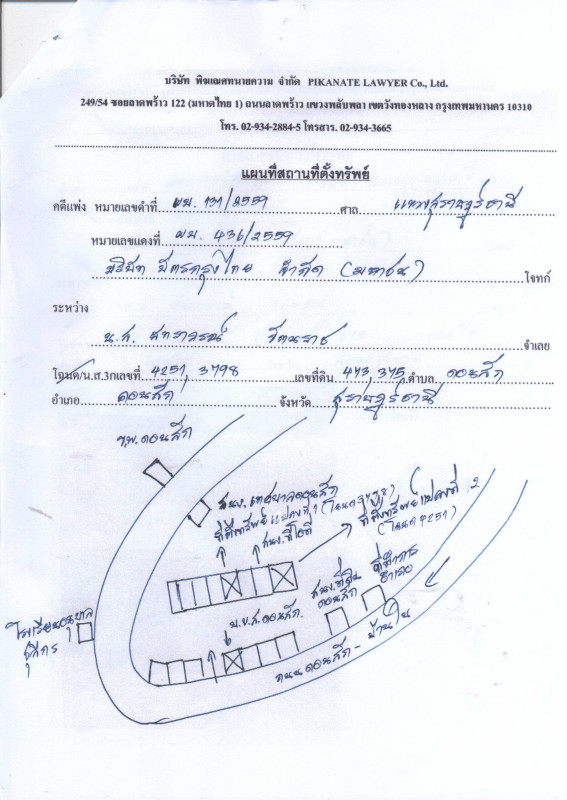 บริษัท พิฆเณศทนายความ จำกัด PIKANATE LAWYER Co., Ltd.
249/54 ซอยลาดพร้าว 122 (มหาดไทย 1) ถนนลาดพร้าว แขวงพลับพลา เขตวังทองหลาง กรุงเทพมหานคร 10310
โทร. 02-934-2884-5 โทรสาร. 02-934-3665
แผนที่สถานที่ตั้งทรัพย์
คดีแพ่ง หมายเลขดำที่ ผบ. 131/2559 ศาล แขวงสุราษฎร์ธานี
หมายเลขแดงที่ ผบ. 436/2559
บริษัท บัตรกรุงไทย จำกัด (มหาชน) โจทก์
ระหว่าง
น.ส. จำเลย
โฉนด/น.ส.3กเลขที่ 4251, 3798 เลขที่ดิน 473, 375 ตำบล ดอนสัก
อำเภอ ดอนสัก จังหวัด สุราษฎร์ธานี
รพ. ดอนสัก
สนง. เทศบาลดอนสัก
ที่ตั้งทรัพย์แปลงที่ 1
ที่ตั้งทรัพย์แปลงที่ 2
(โฉนด 4251)
สนง. ทีโอที
สนง. ที่ดิน
ดอนสัก
ที่ว่าการ
อำเภอ
บ.ข.ส. ดอนสัก
โรงเรียนอนุบาล
ถนนดอนสัก - บ้านใน